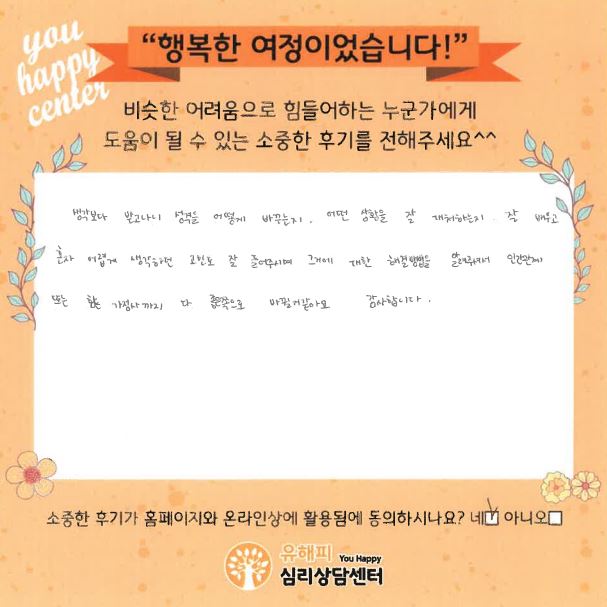 you
happy
center
“행복한 여정이었습니다!”
비슷한 어려움으로 힘들어하는 누군가에게
도움이 될 수 있는 소중한 후기를 전해주세요^^
생각보다 받고나니 성격을 어떻게 바꾸는지, 어떤 상황을 잘 대처하는지. 잘 배우고
혼자 어렵게 생각하던 고민도 잘 들어주시며 그거에 대한 해결방법을 알려주셔서 인간관계
또는 가정사까지 다 좋은쪽으로 바뀔거같아요 감사합니다.
소중한 후기가 홈페이지와 온라인상에 활용됨에 동의하시나요? 네☑ 아니오□
유해피 You Happy
심리상담센터